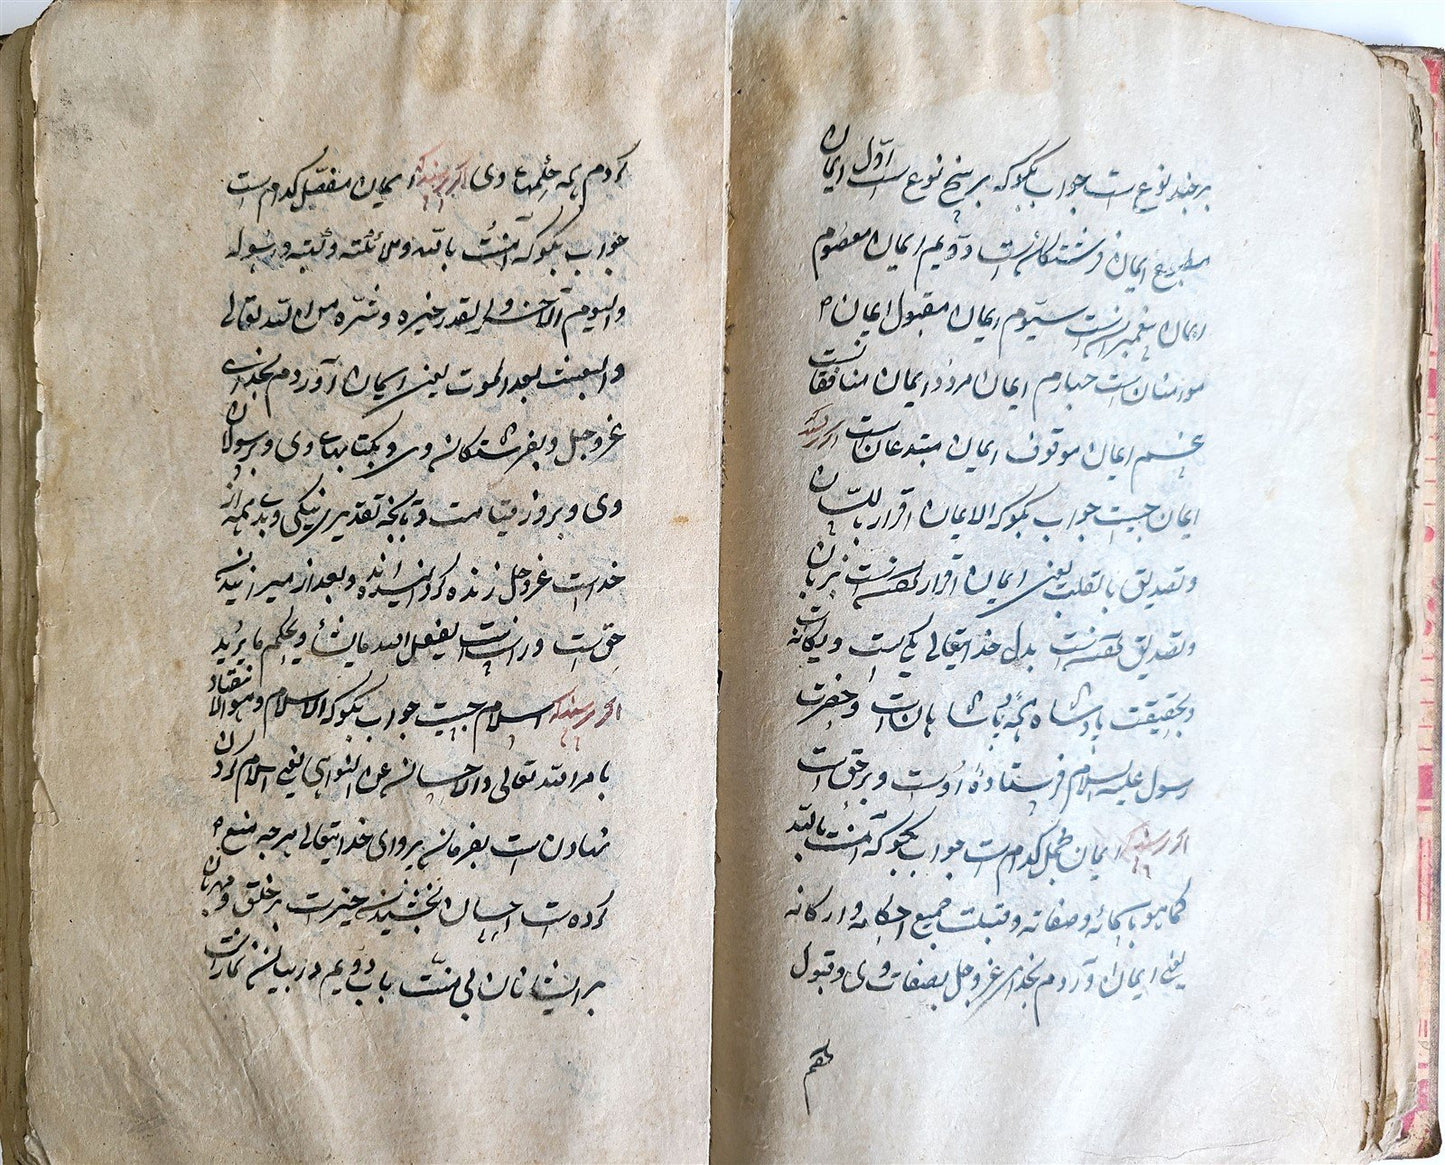 بر چند نوع است جواب بگو که بر پنج نوع است اوّل ایمان
مطبوع ایمان فرشتگان است دویم ایمان معصوم
ایمان پیغمبران است سیّوم ایمان مقبول ایمان
مومنان است چهارم ایمان مردود ایمان منافقانست
پنجم ایمان موقوف ایمان مبتدعان است اگر پرسند که
ایمان چیست جواب بگو که الایمان اقرار باللسان
و تصدیق بالقلب یعنی ایمان اقرار کردنست بزبان
و تصدیق کردنست بدل خدایتعالی یکیست و یگانه است
و بحقیقت پادشاه همه پادشاهان است و حضرت
رسول علیه السلام فرستادهٔ اوست و برحق است
اگر پرسند که ایمان مجمل کدام است جواب بگو که آمنت بالله
کما هو باسمائه و صفاته و قبلت جمیع احکامه و ارکانه
یعنی ایمان آوردم بخدای عزوجل بصفات وی و قبول
کردم همه حکمهاء وی اگر پرسند که ایمان مفصّل کدام است
جواب بگو که آمنتُ بالله و ملائکته و کتبه و رسوله
والیوم الآخر والقدر خیره و شرّه من الله تعالی
والبعث بعد الموت یعنی ایمان آوردم بخدای
عزوجل و بفرشتگان وی و بکتابهاء وی و برسولان
وی و بروز قیامت و بآنکه تقدیر نیکی و بدی همه از
خداست عزوجل زنده گردانیده اند و بعد از میرانیدن
حق است و راست است یفعل الله ما یشأ و یحکم ما یرید
اگر پرسند که اسلام چیست جواب بگو که الاسلام و هو الانقیاد
بامر الله تعالی والاحسان عن النواهی یعنی اسلام گردن
نهادن است بفرمان بروای خدایتعالی هر چه منع
کرده است احسان بخشیدن خیرت بر خلق و مهربان
بر ایشانان بی منّت باب دویم در بیان نماز است